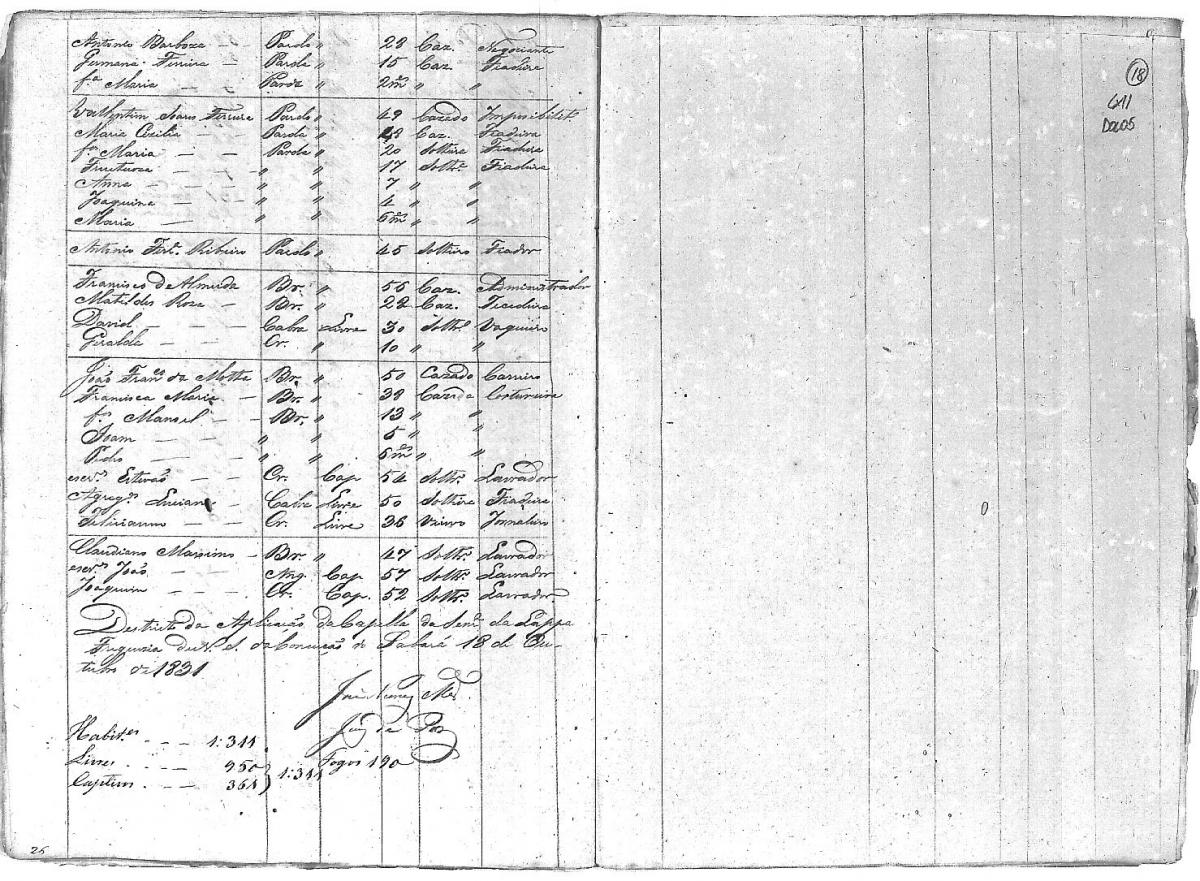 Antonio Barboza - - Pardo " 28 Caz. Negociante
Germana Ferreira - Parda " 15 Caz. Fiadeira
fª Maria - - Parda " 2m " "
Vallentim Soares Ferreira Pardo " 49 Cazado
Maria Cezilia - - Parda " Caz. Fiadeira
fª Maria - - Parda " 20 Solteira Fiadeira
Fructuoza - - " " 17 Soltrª Fiadeira
Anna - - - " " 7 " "
Joaquina - - " " 4 " "
Maria - - " " 6m " "
Antonio Ferª Ribeiro Pardo " 45 Solteiro Fiador
Francisco de Almeida Br. " 56 Caz. Administrador
Matildes Roza - Br. " 22 Caz. Fiadeira
David - - - Cabra Livre 30 Soltrº Vaqueiro
Geralda - - - Cr. " 10 " "
João Francº da Motta Br. " 50 Cazado Carreiro
Francisca Maria - Br. " 39 Cazada Costureira
fº Manoel - - Br. " 13 " "
Joam - - " " 5 " "
Pedro - - " " 6m " "
escrº Estevão - - Cr. Cap. 54 Soltrº Lavrador
Agregºs Luciana - Cabra Livre 50 Solteira Fiadeira
Feliciano - - Cr. Livre 36 Viuvo Jornaleiro
Claudiano Maximo - Br. " 47 Soltrº Lavrador
escrºs João - - Ang. Cap. 57 Soltrº Lavrador
Joaquim - - Cr. Cap. 52 Soltrº Lavrador
Destricto da Aplicação da Capella da Senrª da Lappa
Freguezia de N. S. da Conceicão do Sabará 18 de Ou-
tubro de 1831
Juiz de Paz
Habit.es - - - 1:311
Livres - - - 950 } 1:311 Fogos 190
Captivos - - - 361
26
18
Cx11
Doc05